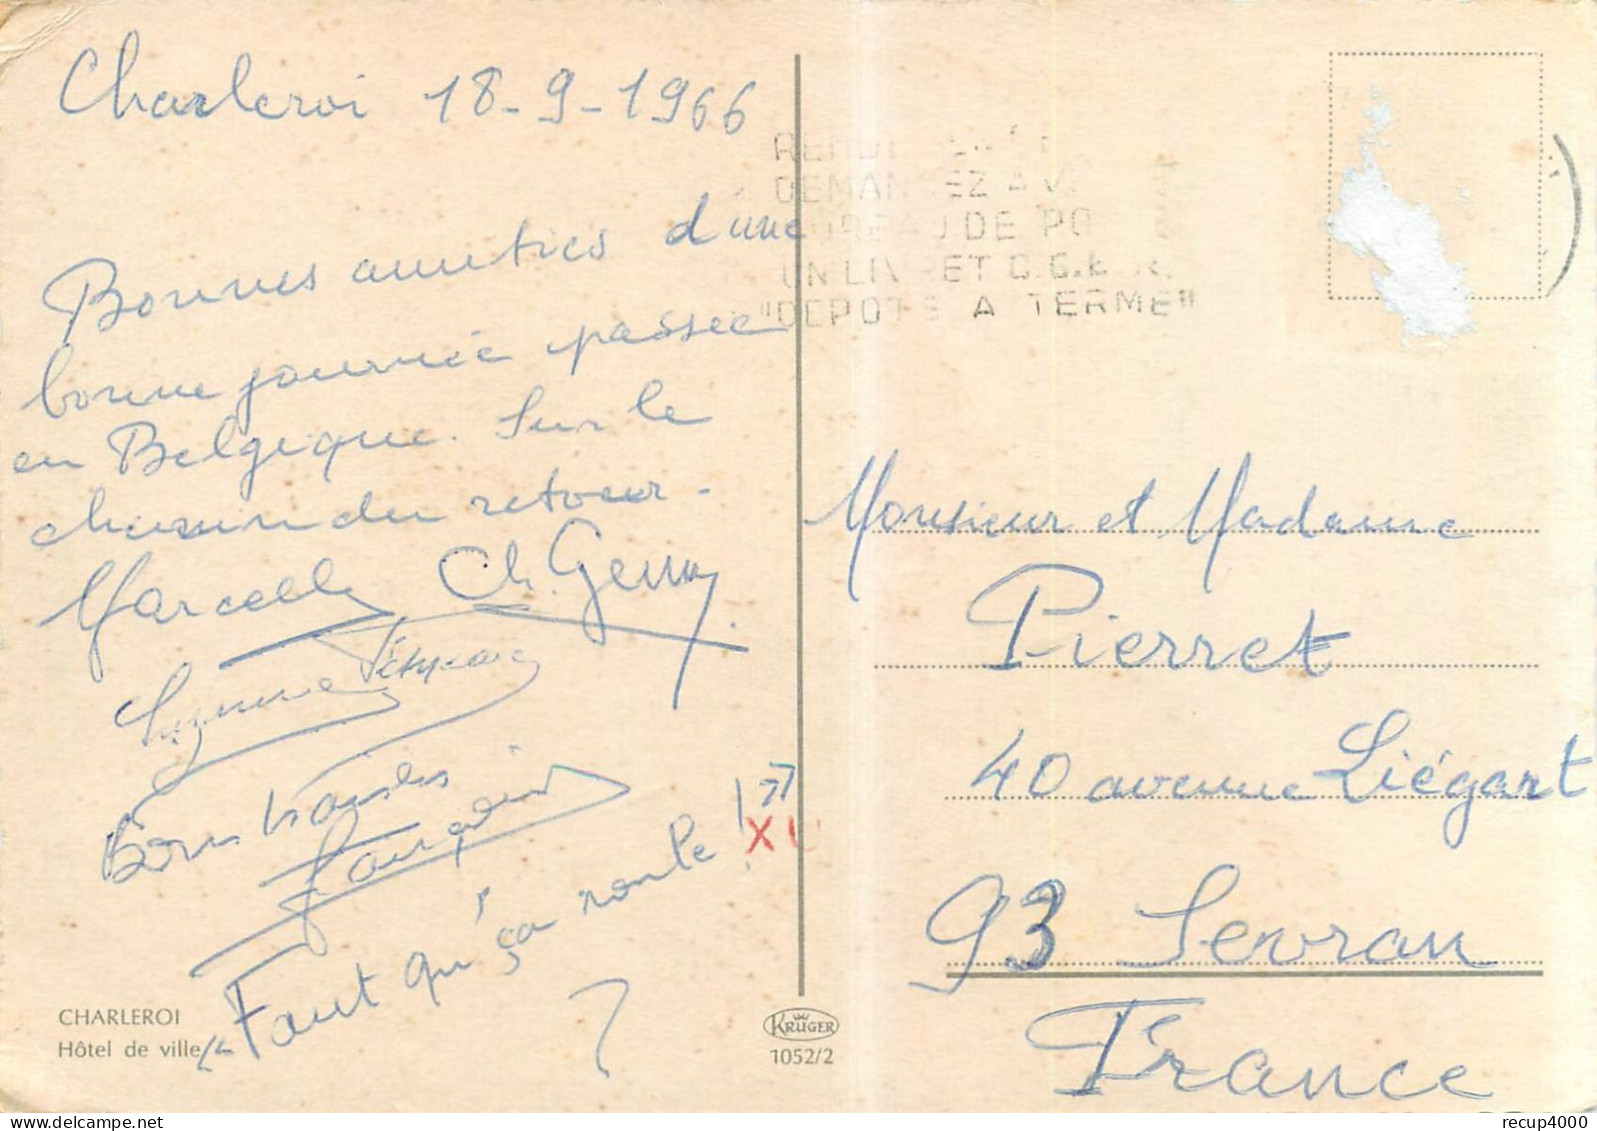 Charleroi 18-9-1966
Bonnes amitiés d'une
bonne journée passée
en Belgique. Sur le
chemin du retour.
Marcelle Ch. Gerny
Suzanne
Bons baisers
"Faut qu'ça roule!"
CHARLEROI
Hôtel de ville
DEMANDEZ A V
BUREAU DE PO
UN LIVRET C.G.E.R.
"DEPOTS A TERME"
Monsieur et Madame
Pierret
40 avenue Liégart
93 Sevran
France
KRÜGER
1052/2
delcampe.net
recup4000